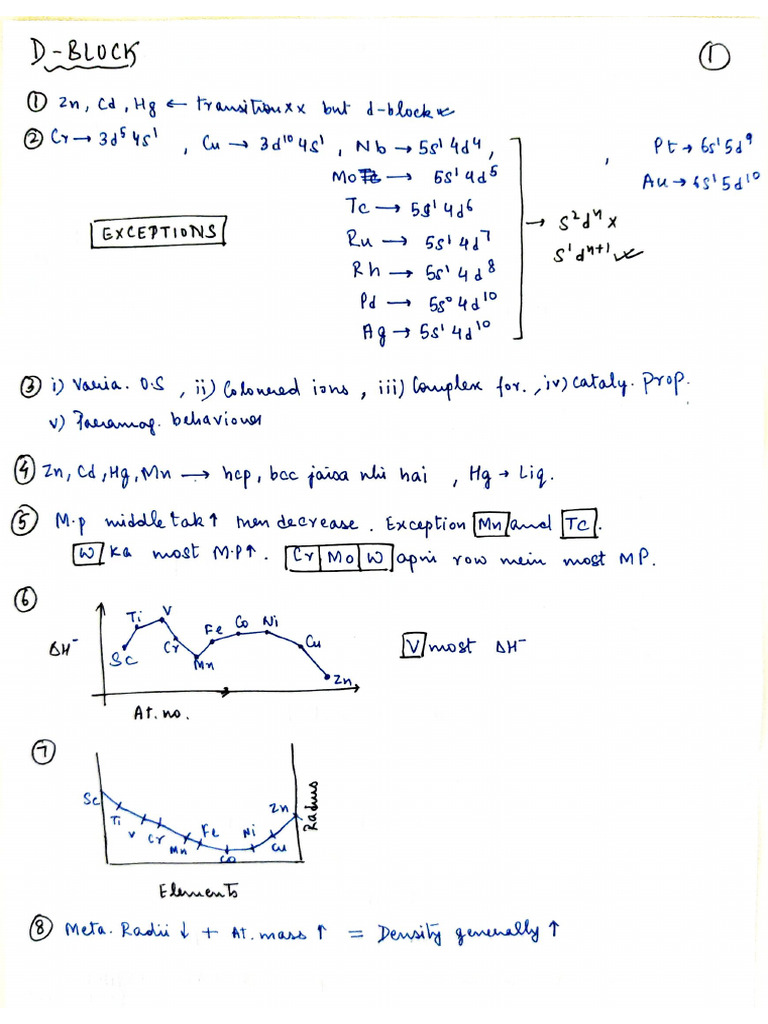 D-BLOCK
①
① Zn, Cd, Hg ← transition xx but d-block ✓
② Cr → 3d⁵4s¹, Cu → 3d¹⁰4s¹, Nb → 5s¹4d⁴,
Mo → 5s¹4d⁵
Tc → 5s¹4d⁶
Ru → 5s¹4d⁷
Rh → 5s¹4d⁸
Pd → 5s⁰4d¹⁰
Ag → 5s¹4d¹⁰
EXCEPTIONS
→ s²dⁿ x
s¹dⁿ⁺¹ ✓
, Pt → 6s¹5d⁹
Au → 6s¹5d¹⁰
③ i) Varia. O.S, ii) Coloured ions, iii) Complex for., iv) Cataly. Prop.
v) Paramag. behaviour
④ Zn, Cd, Hg, Mn → hcp, bcc jaisa nhi hai, Hg → Liq.
⑤ M.p middle tak ↑ then decrease. Exception Mn and Tc.
W ka most M.P ↑. Cr Mo W apni row mein most MP.
⑥
ΔH⁻
Sc
Ti
V
Cr
Mn
Fe
Co
Ni
Cu
Zn
At. no.
V most ΔH⁻
⑦
Sc
Ti
V
Cr
Mn
Fe
Co
Ni
Cu
Zn
Radius
Elements
⑧ Meta. Radii ↓ + At. mass ↑ = Density generally ↑